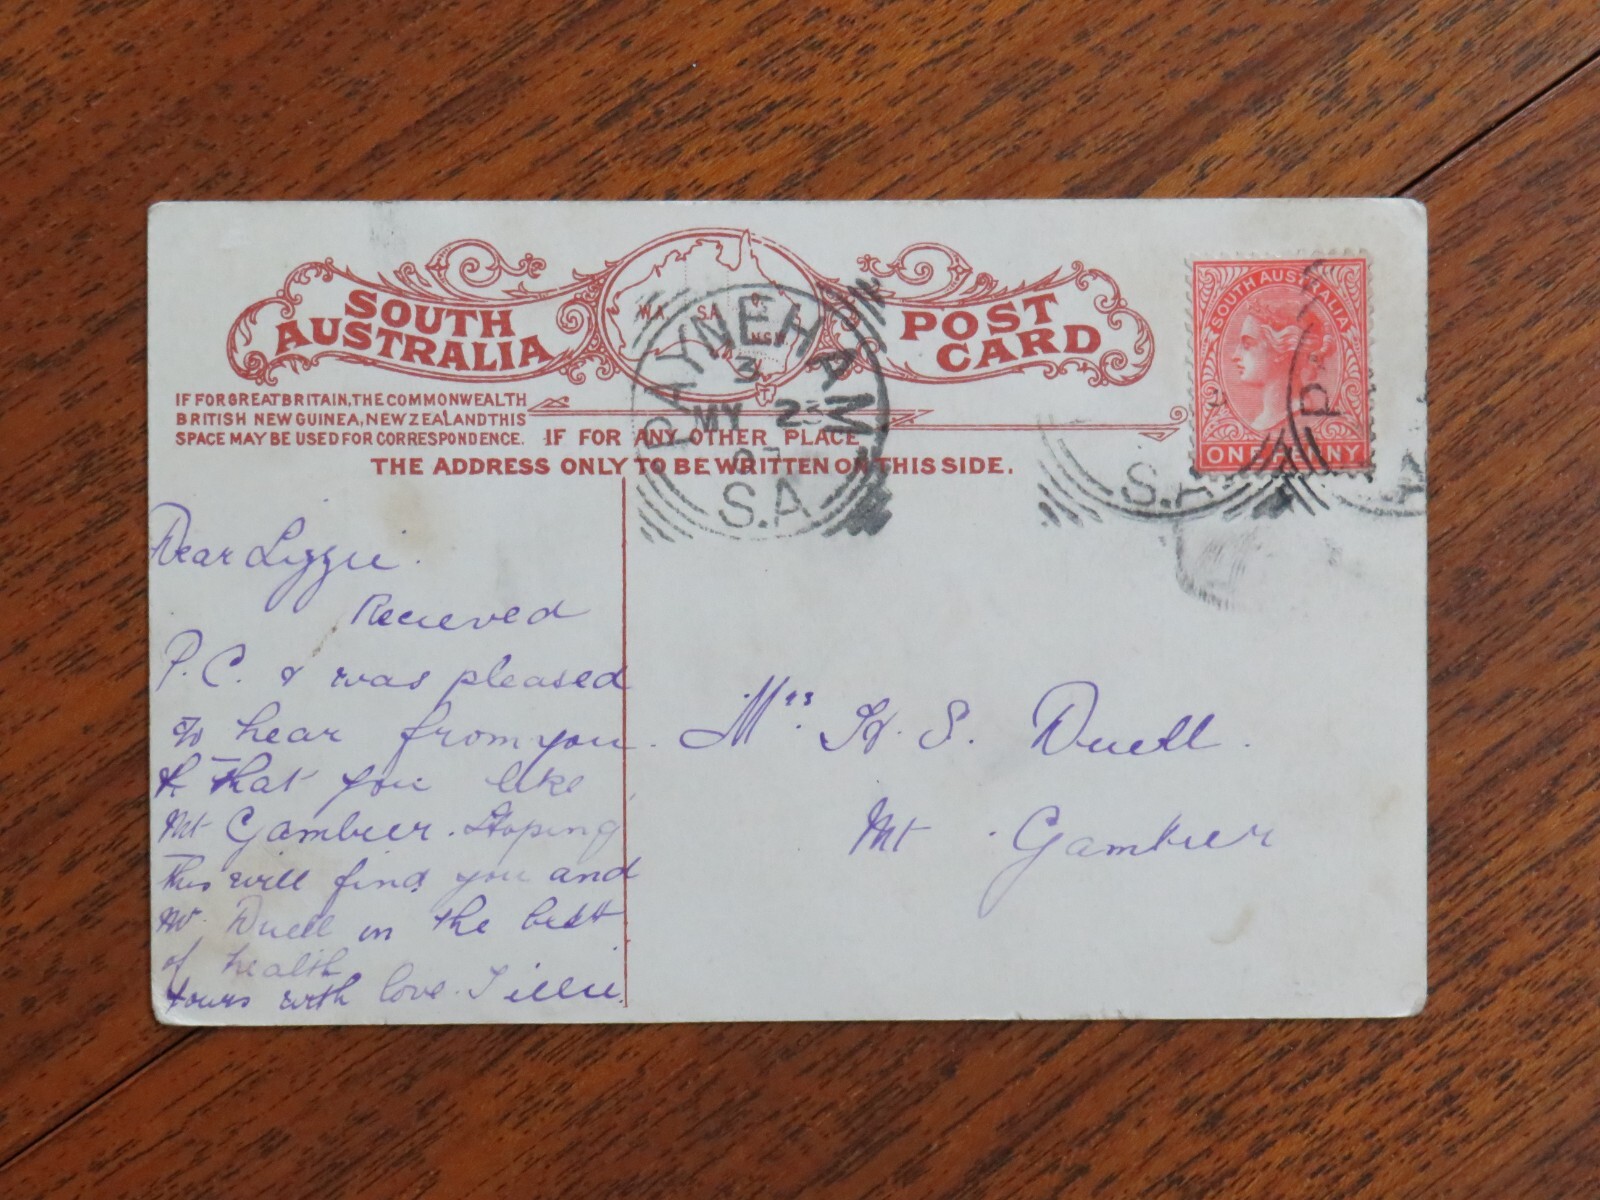 SOUTH
AUSTRALIA
W.A.
S.A.
NSW
POST
CARD
IF FOR GREAT BRITAIN, THE COMMONWEALTH
BRITISH NEW GUINEA, NEW ZEALAND THIS
SPACE MAY BE USED FOR CORRESPONDENCE.
IF FOR ANY OTHER PLACE
THE ADDRESS ONLY TO BE WRITTEN ON THIS SIDE.
PAYNEHAM
3
MY 23
07
S.A
SOUTH AUSTRALIA
ONE PENNY
S.A
Dear Lizzie.
Recieved
P.C. & was pleased
to hear from you.
& that you like
Mt Gambier. Hoping
this will find you and
Mr Duell in the best
of health
Yours with love. Tillie.
Mrs. H. S. Duell.
Mt. Gambier